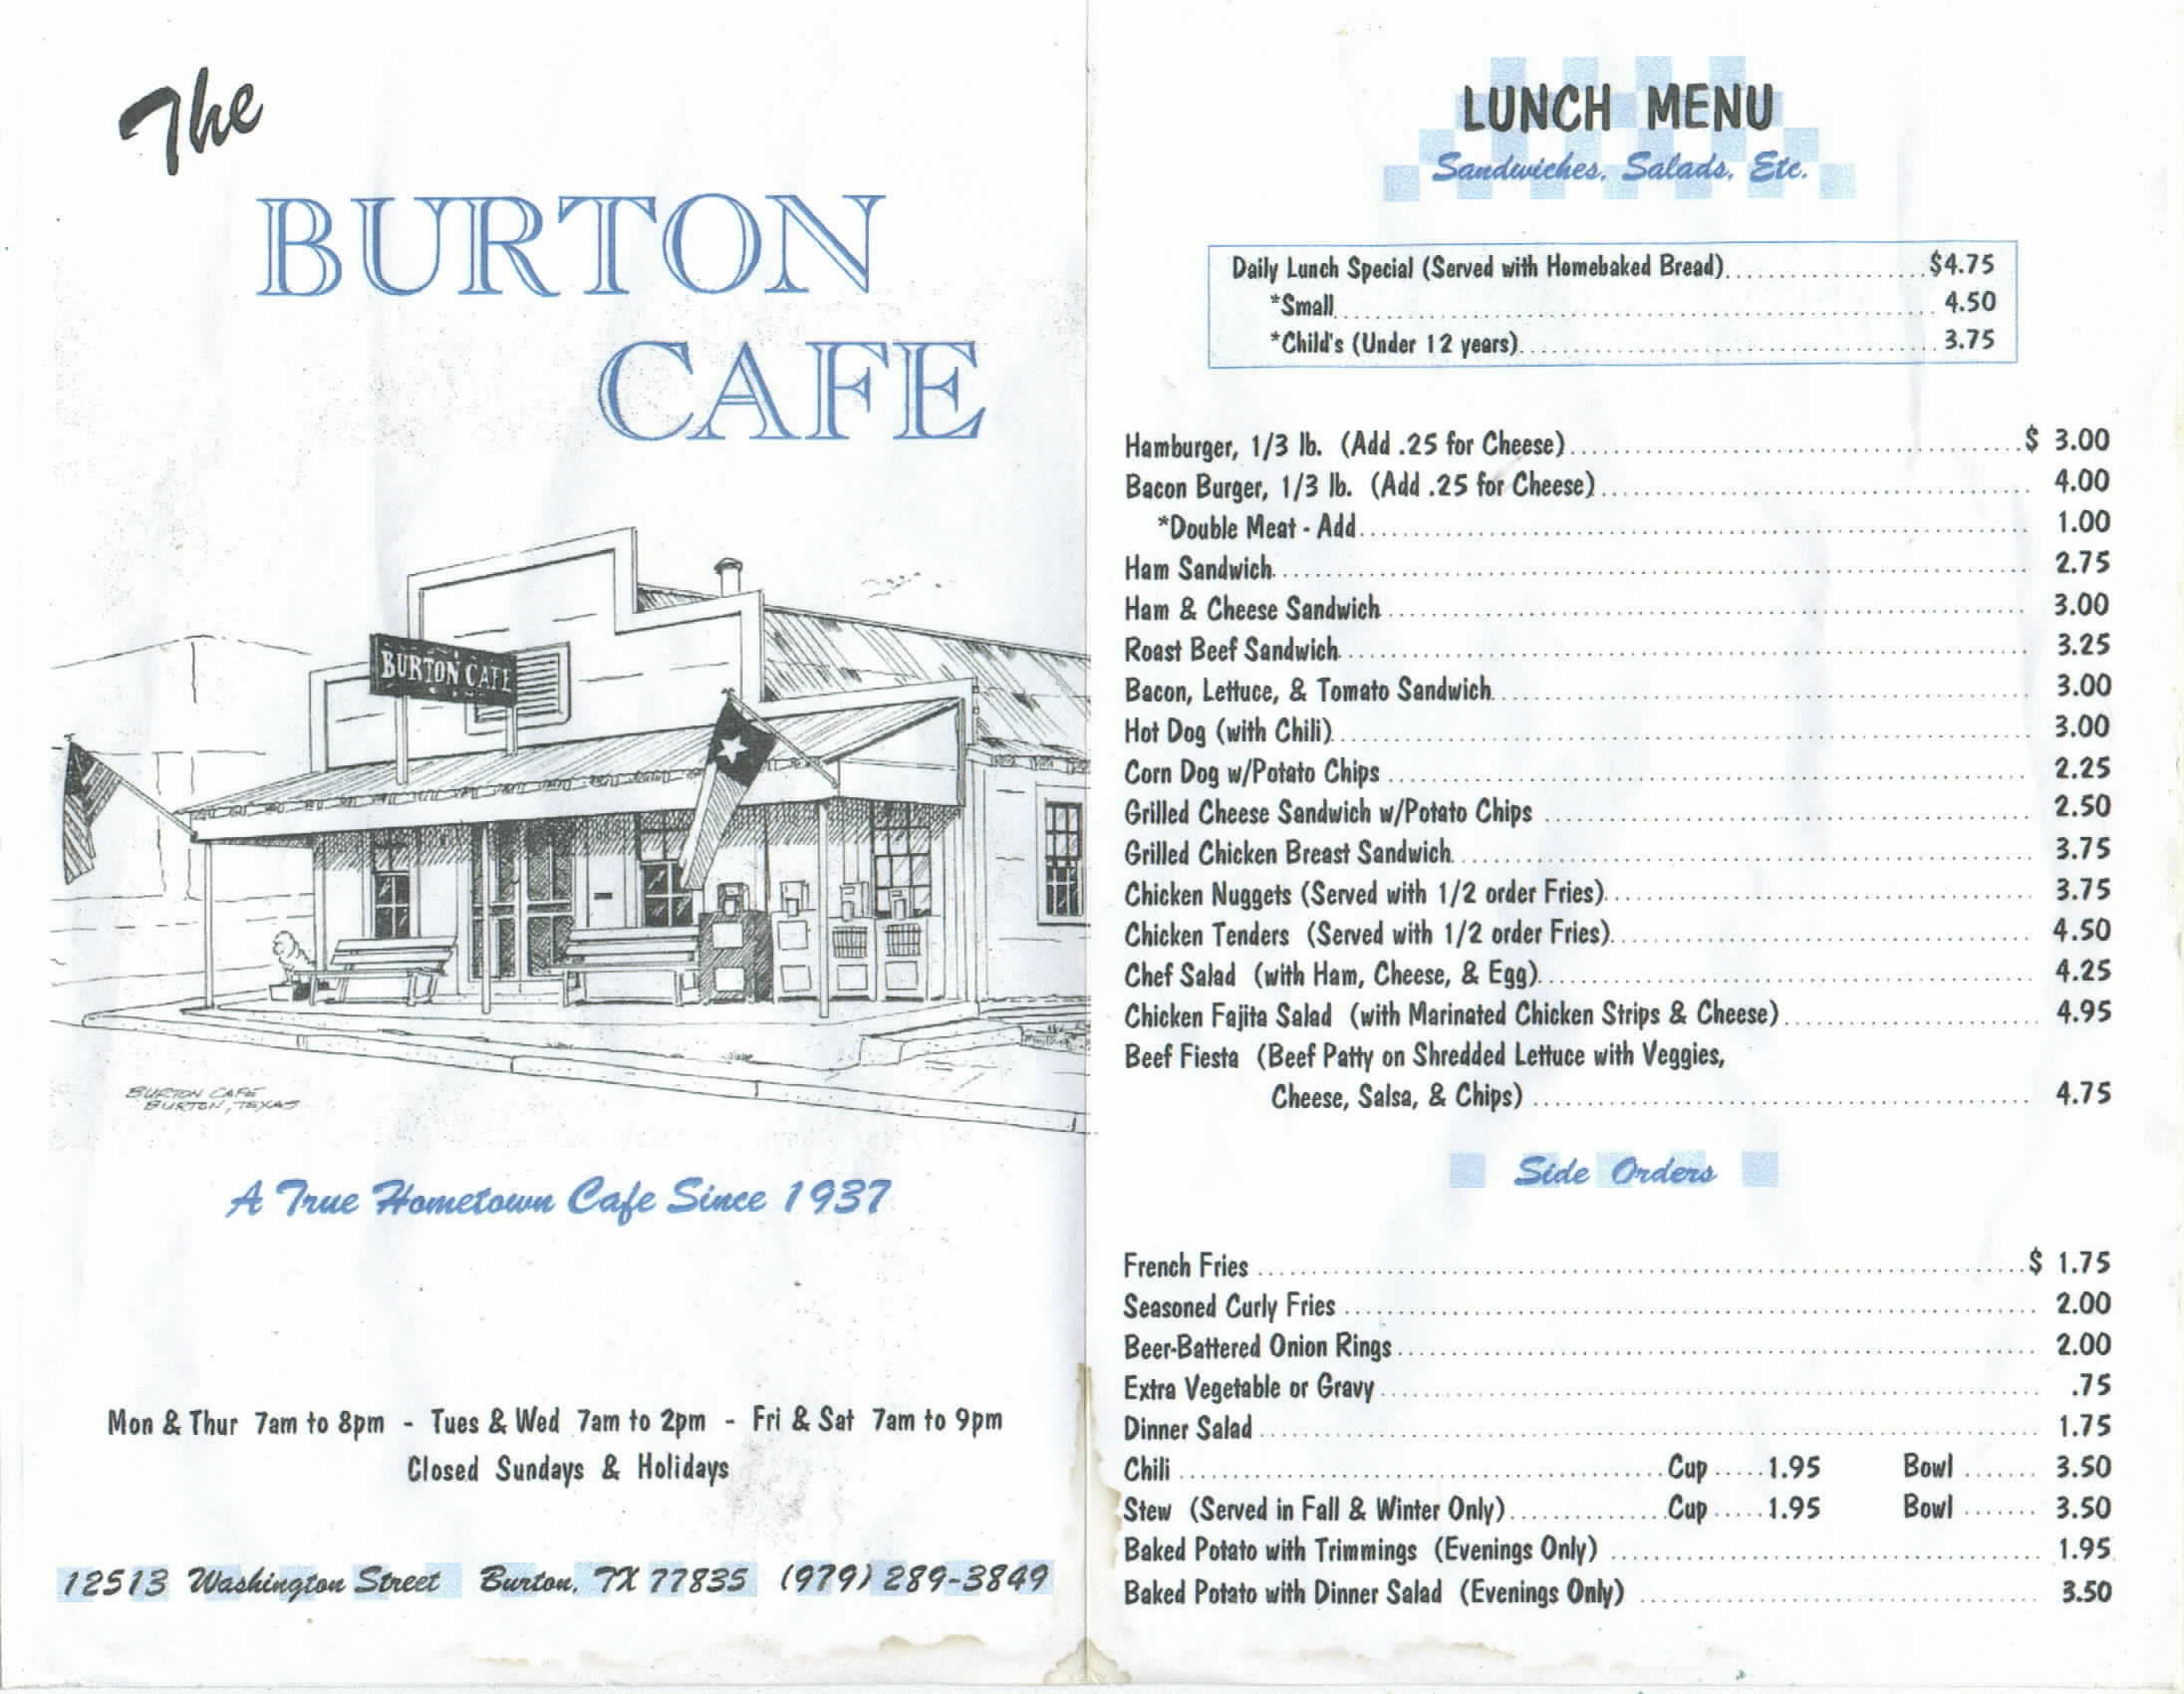 The
BURTON
CAFE
BURTON CAFE
BURTON CAFE
BURTON, TEXAS
A True Hometown Cafe Since 1937
Mon & Thur 7am to 8pm - Tues & Wed 7am to 2pm - Fri & Sat 7am to 9pm
Closed Sundays & Holidays
12513 Washington Street Burton, TX 77835 (979) 289-3849
LUNCH MENU
Sandwiches, Salads, Etc.
Daily Lunch Special (Served with Homebaked Bread)..................$4.75
*Small.................. 4.50
*Child's (Under 12 years).................. 3.75
Hamburger, 1/3 lb. (Add .25 for Cheese)..................$ 3.00
Bacon Burger, 1/3 lb. (Add .25 for Cheese).................. 4.00
*Double Meat - Add.................. 1.00
Ham Sandwich.................. 2.75
Ham & Cheese Sandwich.................. 3.00
Roast Beef Sandwich.................. 3.25
Bacon, Lettuce, & Tomato Sandwich.................. 3.00
Hot Dog (with Chili).................. 3.00
Corn Dog w/Potato Chips.................. 2.25
Grilled Cheese Sandwich w/Potato Chips.................. 2.50
Grilled Chicken Breast Sandwich.................. 3.75
Chicken Nuggets (Served with 1/2 order Fries).................. 3.75
Chicken Tenders (Served with 1/2 order Fries).................. 4.50
Chef Salad (with Ham, Cheese, & Egg).................. 4.25
Chicken Fajita Salad (with Marinated Chicken Strips & Cheese).................. 4.95
Beef Fiesta (Beef Patty on Shredded Lettuce with Veggies,
Cheese, Salsa, & Chips).................. 4.75
Side Orders
French Fries..................$ 1.75
Seasoned Curly Fries.................. 2.00
Beer-Battered Onion Rings.................. 2.00
Extra Vegetable or Gravy.................. .75
Dinner Salad.................. 1.75
Chili..................Cup.....1.95 Bowl....... 3.50
Stew (Served in Fall & Winter Only)...............Cup.....1.95 Bowl....... 3.50
Baked Potato with Trimmings (Evenings Only).................. 1.95
Baked Potato with Dinner Salad (Evenings Only).................. 3.50